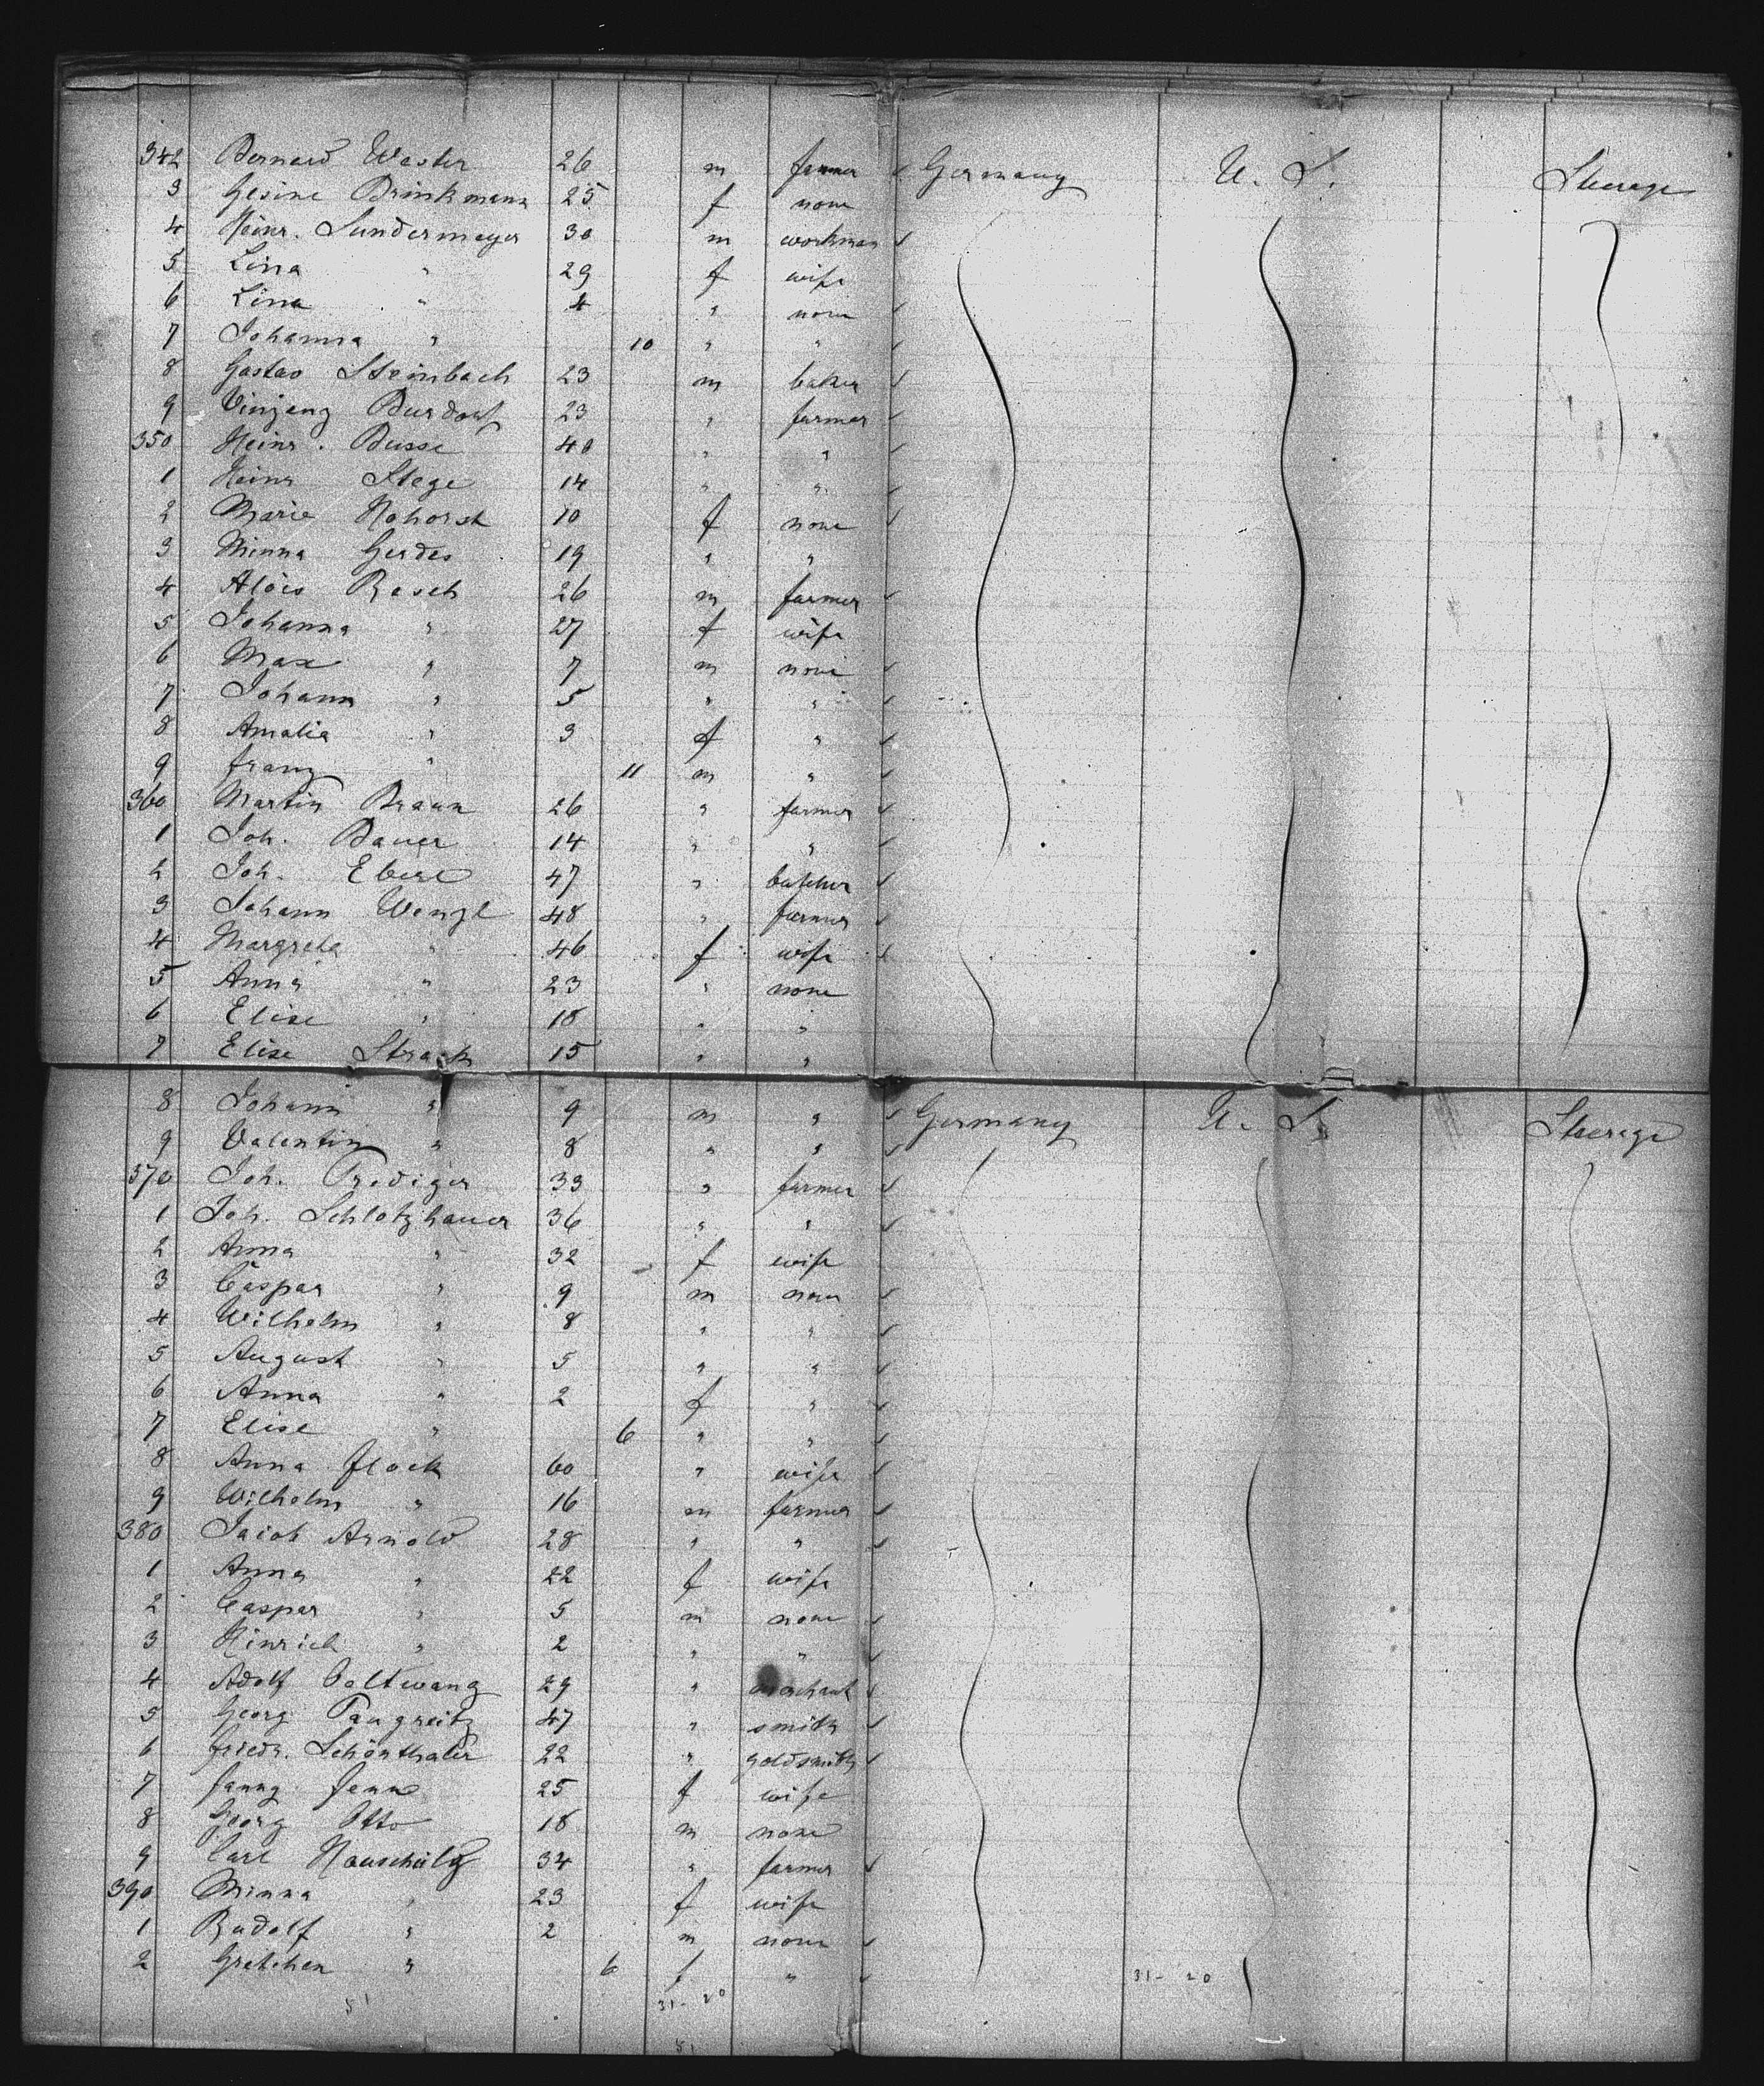 342 Bernard Wester 26 m farmer ✓ Germany U. S. Steerage
3 Gesine Brinkmann 25 f none
4 Heinr. Sundermeyer 30 m workman ✓
5 Lina " 29 f wife
6 Lina " 4 " none ✓
7 Johanna " 10 " " ✓
8 Gustav Steinbach 23 m baker ✓
9 23 " farmer ✓
350 Heinr. Busse 40 " " ✓
1 Heinr Stege 14 " " ✓
2 Marie Nohorst 10 f none ✓
3 Minna Gerdes 19 " "
4 Alois Resch 26 m farmer ✓
5 Johanna " 27 f wife
6 Max " 7 m none ✓
7 Johann " 5 " " ✓
8 Amalia " 3 f " ✓
9 Franz " 11 m " ✓
360 Martin Braun 26 " farmer ✓
1 Joh. Bauer 14 " " ✓
2 Joh. Eberl 47 " butcher ✓
3 Johann Wenzl 48 " farmer ✓
4 Margreta " 46 f wife ✓
5 Anna " 23 " none
6 Elise " 18 " "
7 Elise Strack 15 " "
8 Johann " 9 m " ✓ Germany U. S. Steerage
9 Valentin " 8 " " ✓
370 Joh. Prediger 33 " farmer ✓
1 Joh. Schlotzhauer 36 " " ✓
2 Anna " 32 f wife
3 Caspar " 9 m none ✓
4 Wilhelm " 8 " " ✓
5 August " 5 " " ✓
6 Anna " 2 f " ✓
7 Elise " 6 " " ✓
8 Anna Flock 60 " wife ✓
9 Wilhelm " 16 m farmer ✓
380 Jacob Arnold 28 " " ✓
1 Anna " 22 f wife
2 Caspar " 5 m none ✓
3 Hinrich " 2 " " ✓
4 Adolf 29 " merchant ✓
5 Georg 47 " smith ✓
6 Friedr. Schönthaler 22 " goldsmith ✓
7 Fanny 25 f wife
8 Georg Otto 18 m none
9 Carl 34 " farmer ✓
390 Minna " 23 f wife
1 Rudolf " 2 m none ✓
2 Gretchen " 6 f " ✓ 31 - 20
51 31 - 20
51